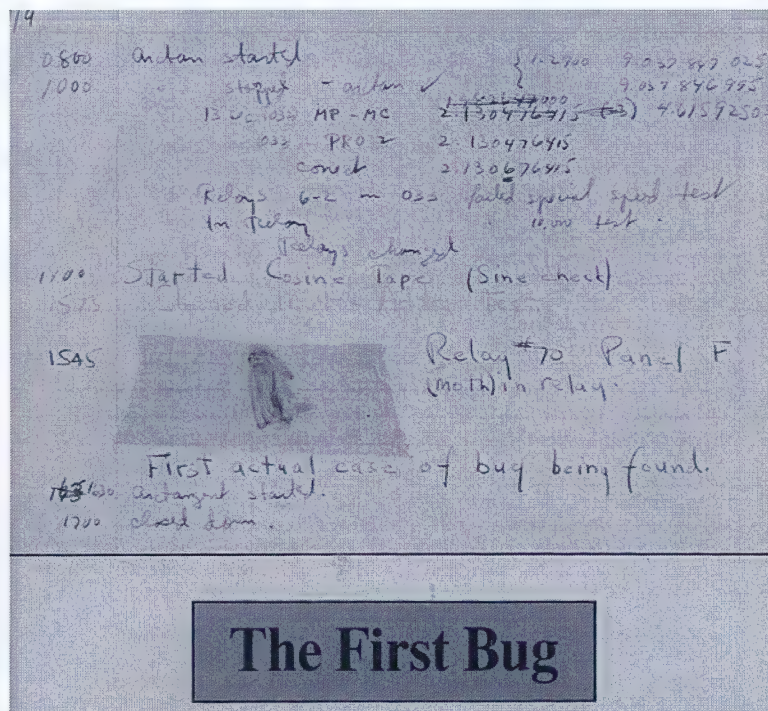 19
0800 antan started { 1.2700 9.037 847 025
1000 " stopped - antan ✓ 9.037 846 995
13" MP - MC 2.130476415 (-3) 4.615925059
033 PRO 2 2.130476415
correct 2.130676415
Relays 6-2 in 033 failed special speed test
In Relay 10,000 test.
Relays changed
1100 Started Cosine Tape (Sine check)
1545 Relay #70 Panel F
(moth) in relay.
First actual case of bug being found.
1630 antangent started.
1700 closed down.
The First Bug